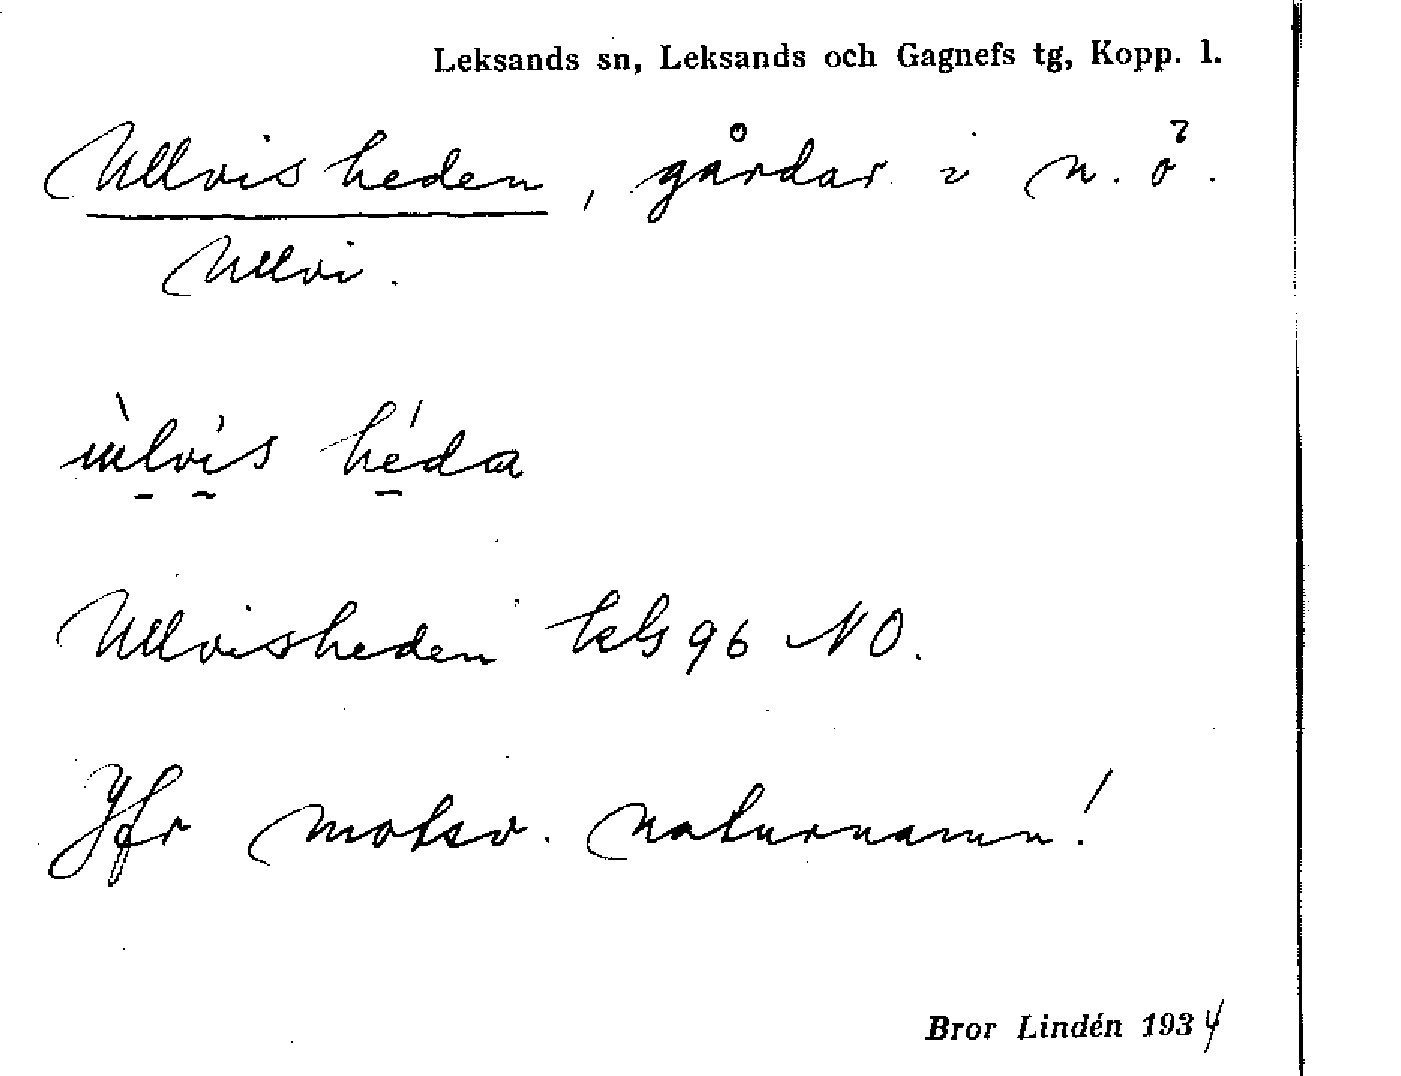 Leksands sn, Leksands och Gagnefs tg, Kopp. l.
Ullvisheden, gårdar i n. ö.
Ullvi.
ùlvis héda
Ullvisheden kG 96 NO.
Jfr motsv. naturnamn!
Bror Lindén 1934